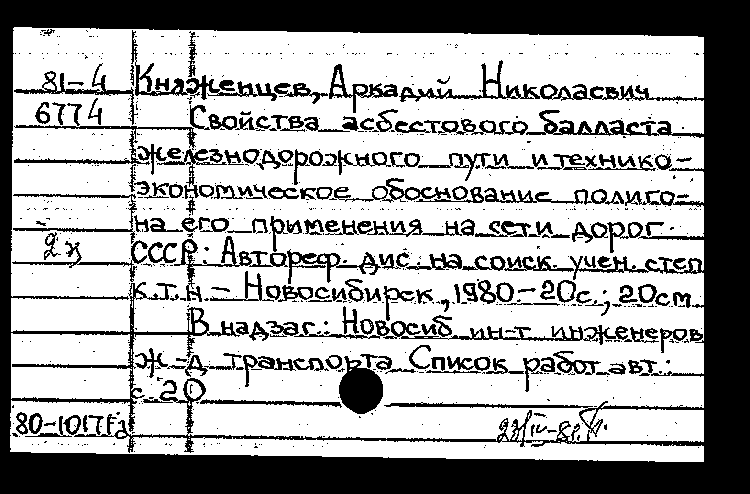 81-4 Княженцев, Аркадий Николаевич
6774 Свойства асбестового балласта
железнодорожного пути и технико-
экономическое обоснование полиго-
на его применения на сети дорог
2ж СССР: Автореф. дис. на соиск. учен. степ
к.т.н - Новосибирск, 1980 - 20с.; 20см
В надзаг.: Новосиб ин-т инженеров
ж-д транспорта Список работ авт.:
с. 20
80-1017Га 23/IV-81